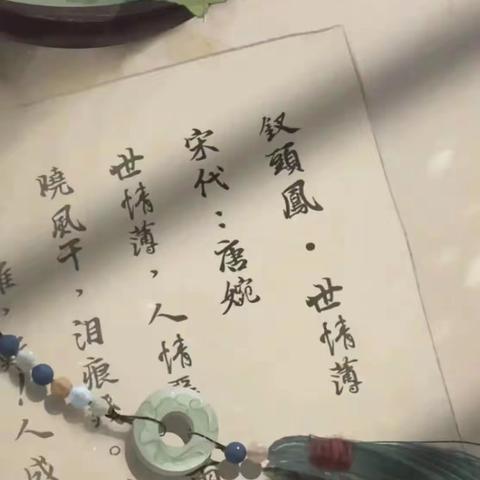 釵頭鳳·世情薄
宋代：唐婉
世情薄，人情
曉風干，泪痕。
！人成